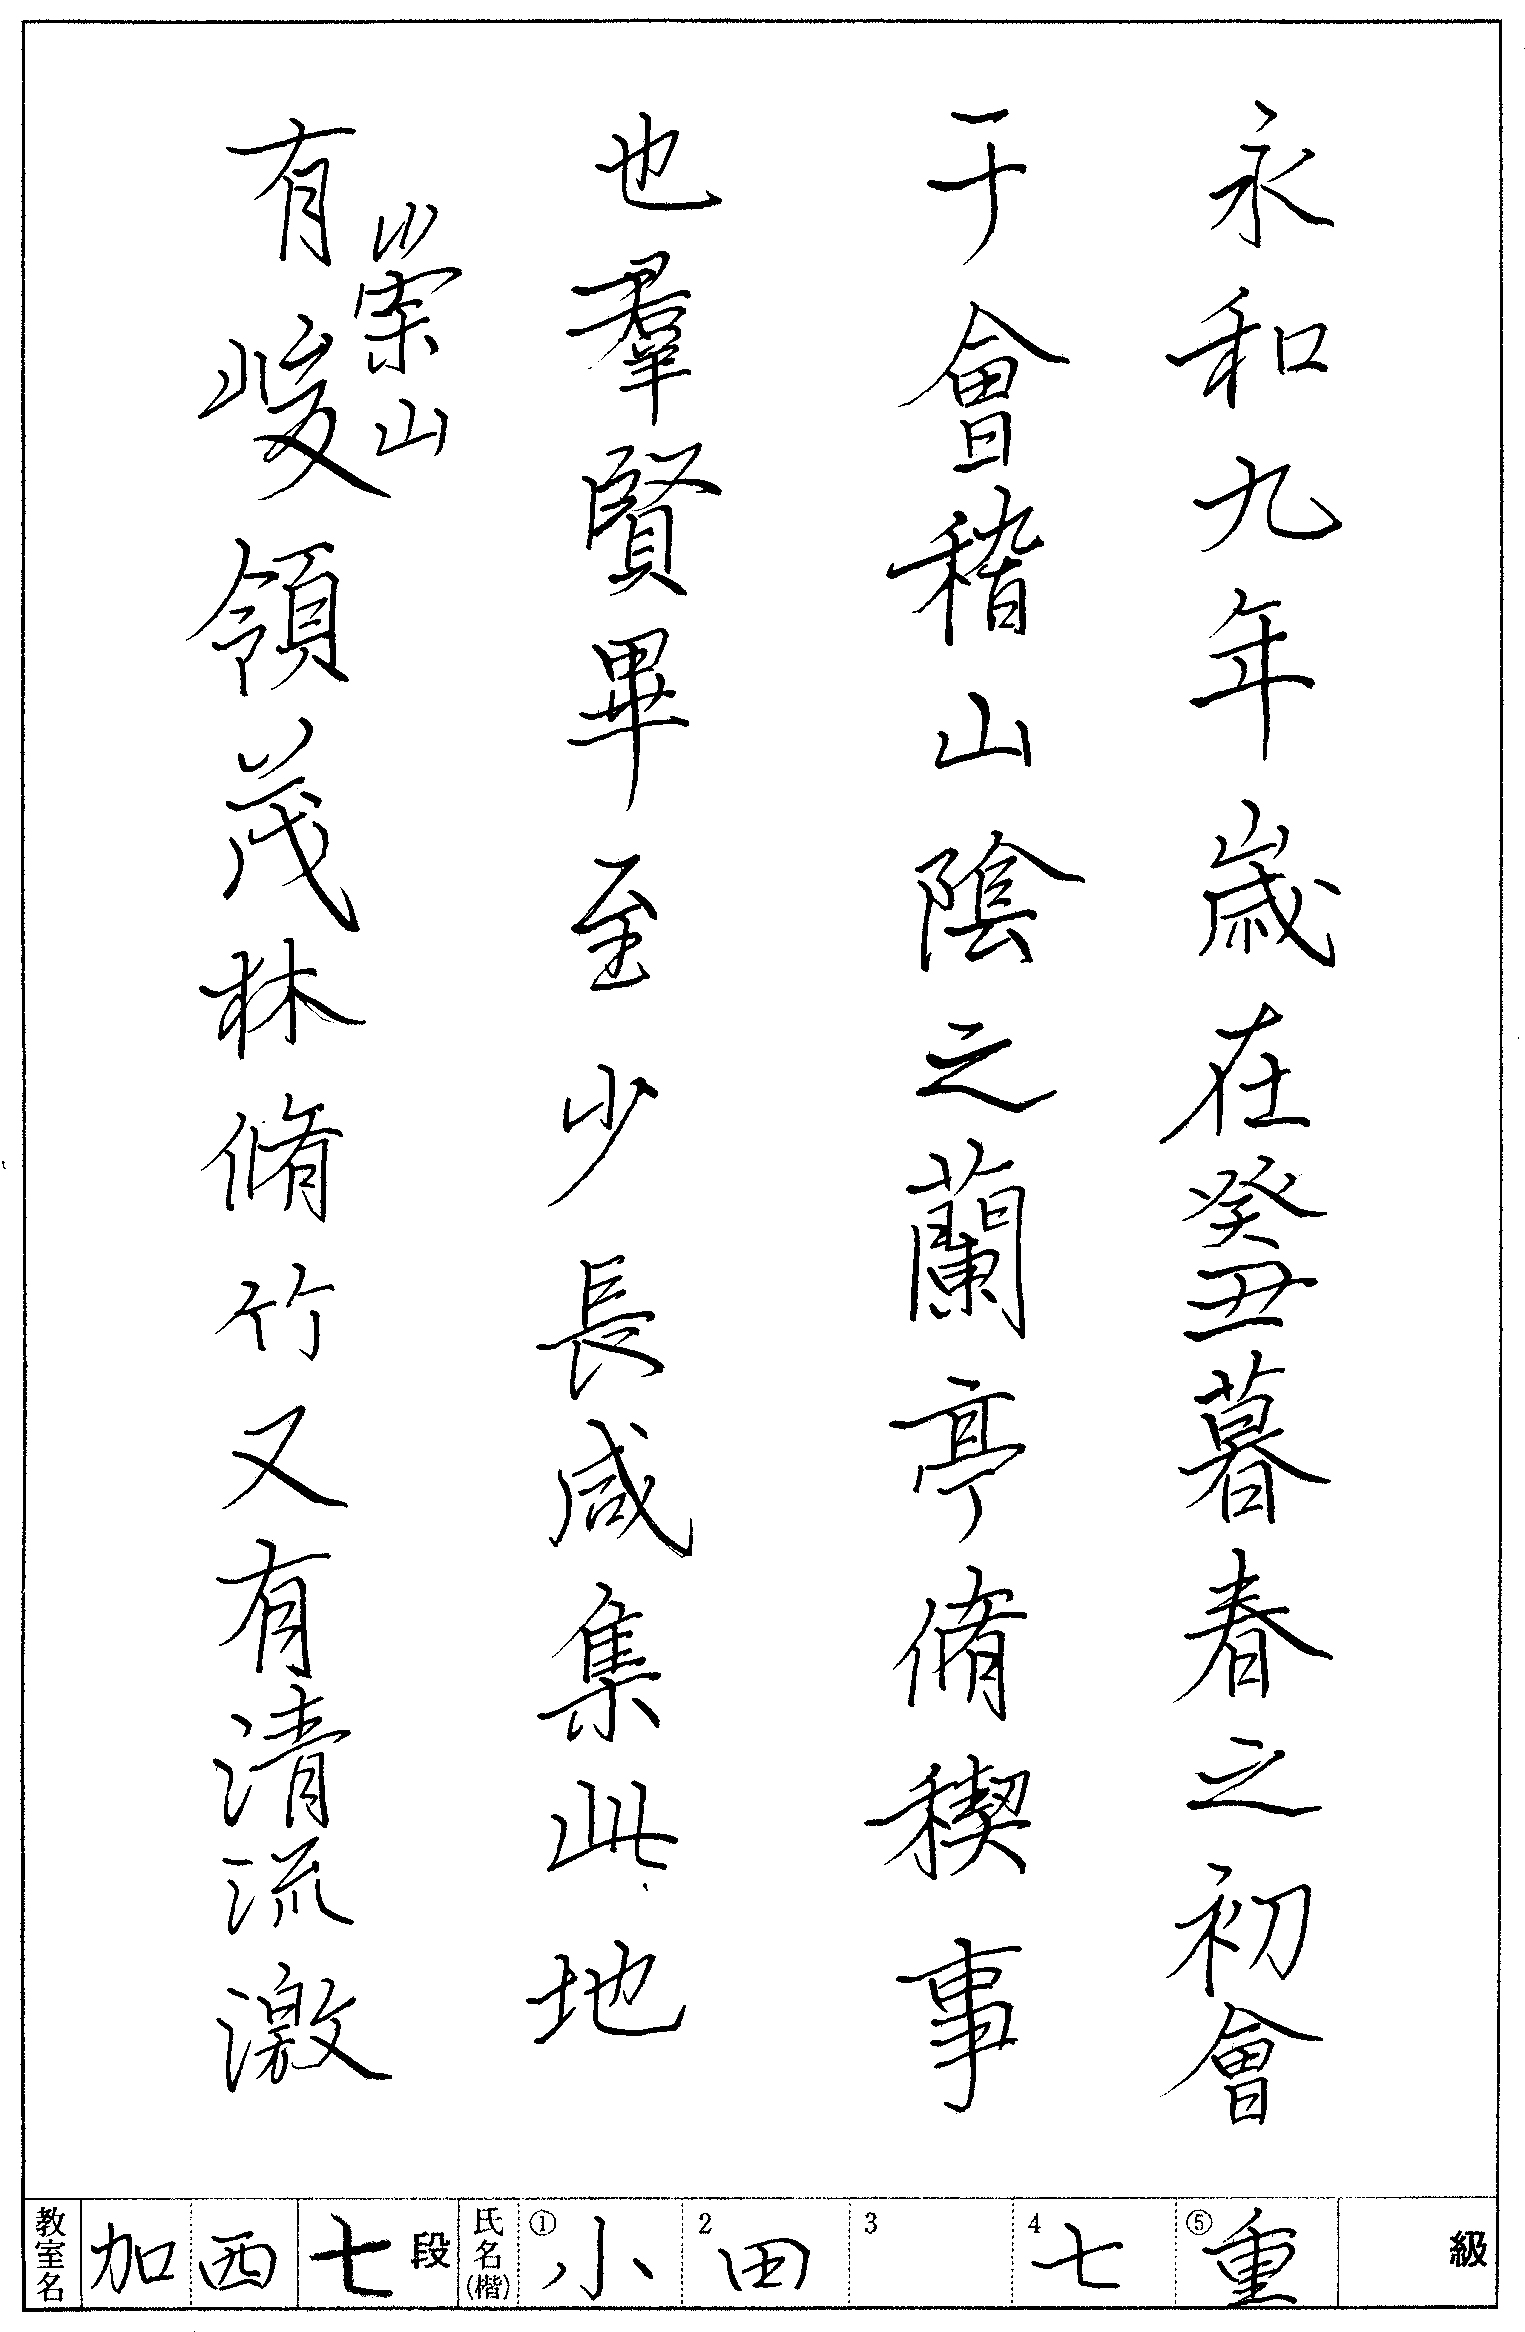 永和九年歳在癸丑暮春之初會
于會稽山陰之蘭亭脩稧事
也羣賢畢至少長咸集此地
崇山
有峻領茂林脩竹又有清流激
教室名 加西 七段 氏名(楷) ①小 2田 3 4七 ⑤重 級